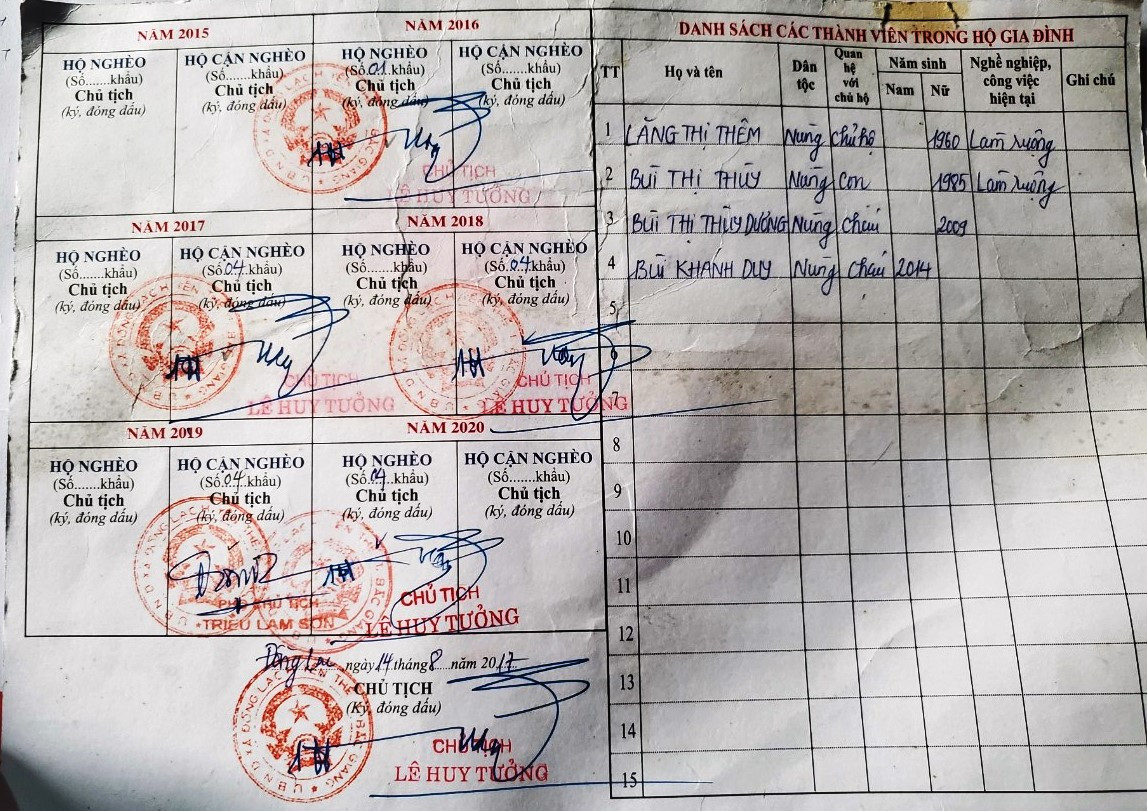 NĂM 2015
NĂM 2016
HỘ NGHÈO
(Số.......khẩu)
Chủ tịch
(ký, đóng dấu)
HỘ CẬN NGHÈO
(Số.......khẩu)
Chủ tịch
(ký, đóng dấu)
HỘ NGHÈO
(Số.01.khẩu)
Chủ tịch
(ký, đóng dấu)
HỘ CẬN NGHÈO
(Số.......khẩu)
Chủ tịch
(ký, đóng dấu)
CHỦ TỊCH
LÊ HUY TƯỞNG
NĂM 2017
NĂM 2018
HỘ NGHÈO
(Số.......khẩu)
Chủ tịch
(ký, đóng dấu)
HỘ CẬN NGHÈO
(Số.04.khẩu)
Chủ tịch
(ký, đóng dấu)
HỘ NGHÈO
(Số.......khẩu)
Chủ tịch
(ký, đóng dấu)
HỘ CẬN NGHÈO
(Số.04.khẩu)
Chủ tịch
(ký, đóng dấu)
CHỦ TỊCH
LÊ HUY TƯỞNG
CHỦ TỊCH
LÊ HUY TƯỞNG
NĂM 2019
NĂM 2020
HỘ NGHÈO
(Số.......khẩu)
Chủ tịch
(ký, đóng dấu)
HỘ CẬN NGHÈO
(Số.04.khẩu)
Chủ tịch
(ký, đóng dấu)
HỘ NGHÈO
(Số.04.khẩu)
Chủ tịch
(ký, đóng dấu)
HỘ CẬN NGHÈO
(Số.......khẩu)
Chủ tịch
(ký, đóng dấu)
PHÓ CHỦ TỊCH
TRIỆU LAM SƠN
CHỦ TỊCH
LÊ HUY TƯỞNG
Đồng Lạc, ngày 14 tháng 8 năm 2017
CHỦ TỊCH
(Ký, đóng dấu)
U.B.N.D XÃ ĐỒNG LẠC H. YÊN THẾ T. BẮC GIANG
CHỦ TỊCH
LÊ HUY TƯỞNG
DANH SÁCH CÁC THÀNH VIÊN TRONG HỘ GIA ĐÌNH
TT Họ và tên Dân tộc Quan hệ với chủ hộ Năm sinh Nam Nữ Nghề nghiệp, công việc hiện tại Ghi chú
1 LĂNG THỊ THÊM Nùng chủ hộ 1960 Làm ruộng
2 BÙI THỊ THÙY Nùng Con 1985 Làm ruộng
3 BÙI THỊ THÙY DƯƠNG Nùng cháu 2009
4 BÙI KHÁNH DUY Nùng cháu 2014
5
6
7
8
9
10
11
12
13
14
15